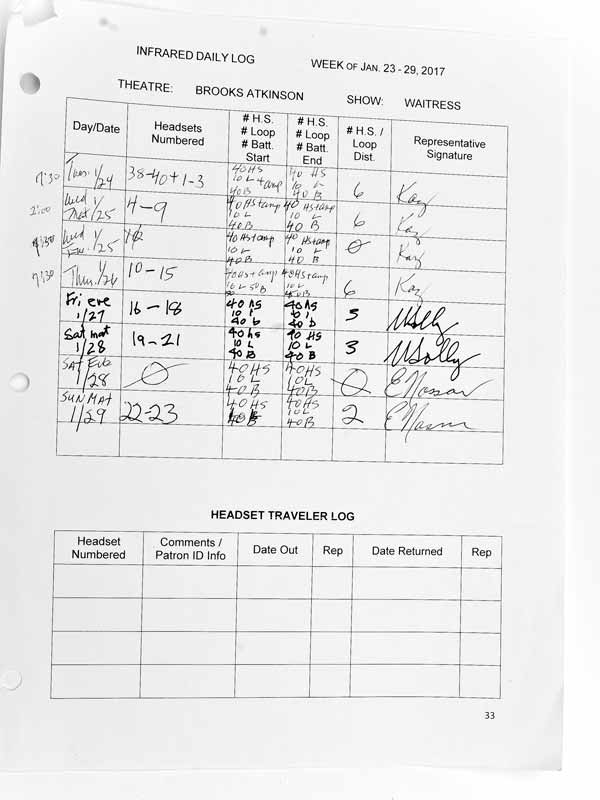 INFRARED DAILY LOG WEEK OF JAN. 23 - 29, 2017
THEATRE: BROOKS ATKINSON SHOW: WAITRESS
Day/Date Headsets Numbered # H.S. # Loop # Batt. Start # H.S. # Loop # Batt. End # H.S. / Loop Dist. Representative Signature
7:30 Tues. 1/24 38-40+1-3 40 HS 10 L + amp 40B 40 HS 10 L 40 B 6 Kaz
2:00 Wed Mat 1/25 4-9 40 HS+amp 10 L 40B 40 HS+amp 10 L 40 B 6 Kaz
Wed Eve. 1/25 40 HS+amp 10 L 40B 40 HS+amp 10 L 40 B 0 Kaz
7:30 Thurs. 1/26 10-15 40HS+amp 10 L 40HS+amp 10 L 6 Kaz
Fri eve 1/27 16-18 40 hs 10 l 40 b 40 hs 10 l 40 b 3
Sat mat 1/28 19-21 40 hs 10 L 40 B 40 HS 10 L 40 B 3
SAT Eve 1/28 0 40 HS 10 L 40 B 40 HS 10 L 40 B 0
SUN MAT 1/29 22-23 40 HS 40 B 40 HS 10 L 40 B 2
HEADSET TRAVELER LOG
Headset Numbered Comments / Patron ID Info Date Out Rep Date Returned Rep
33